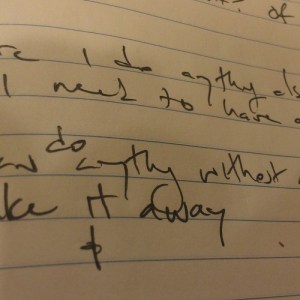 of
I do anythy els
I need to have a
do
anythy without
ke it away